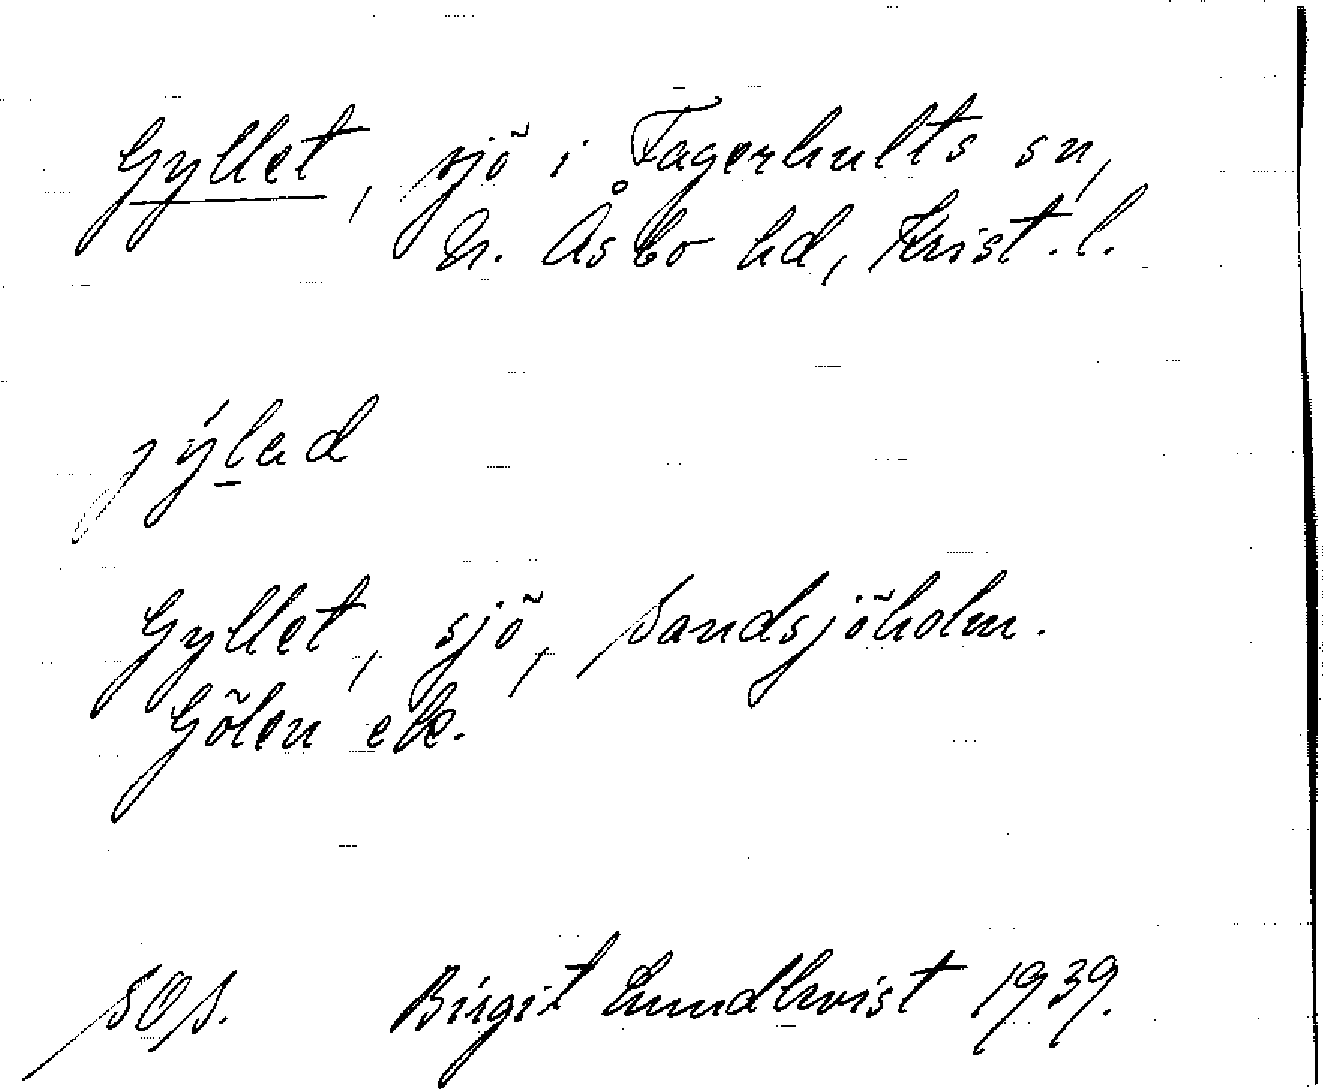 Gyllet, sjö i Fagerhults sn,
N. Åsbo hd, Krist. l.
jýlad
Gyllet, sjö, Sandsjöholm.
Gölen ek.
SOS. Birgit Lundkvist 1939.